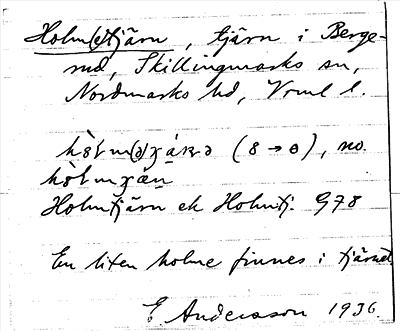 Holm(e)tjärn, tjärn i Berge-
rud, Skillingmarks sn,
Nordmarks hd, Vrml l.
(8→ɵ), no.
Holmtjärn ek Holmtj. G78
En liten holme finnes i tjärnet
E. Andersson 1936.